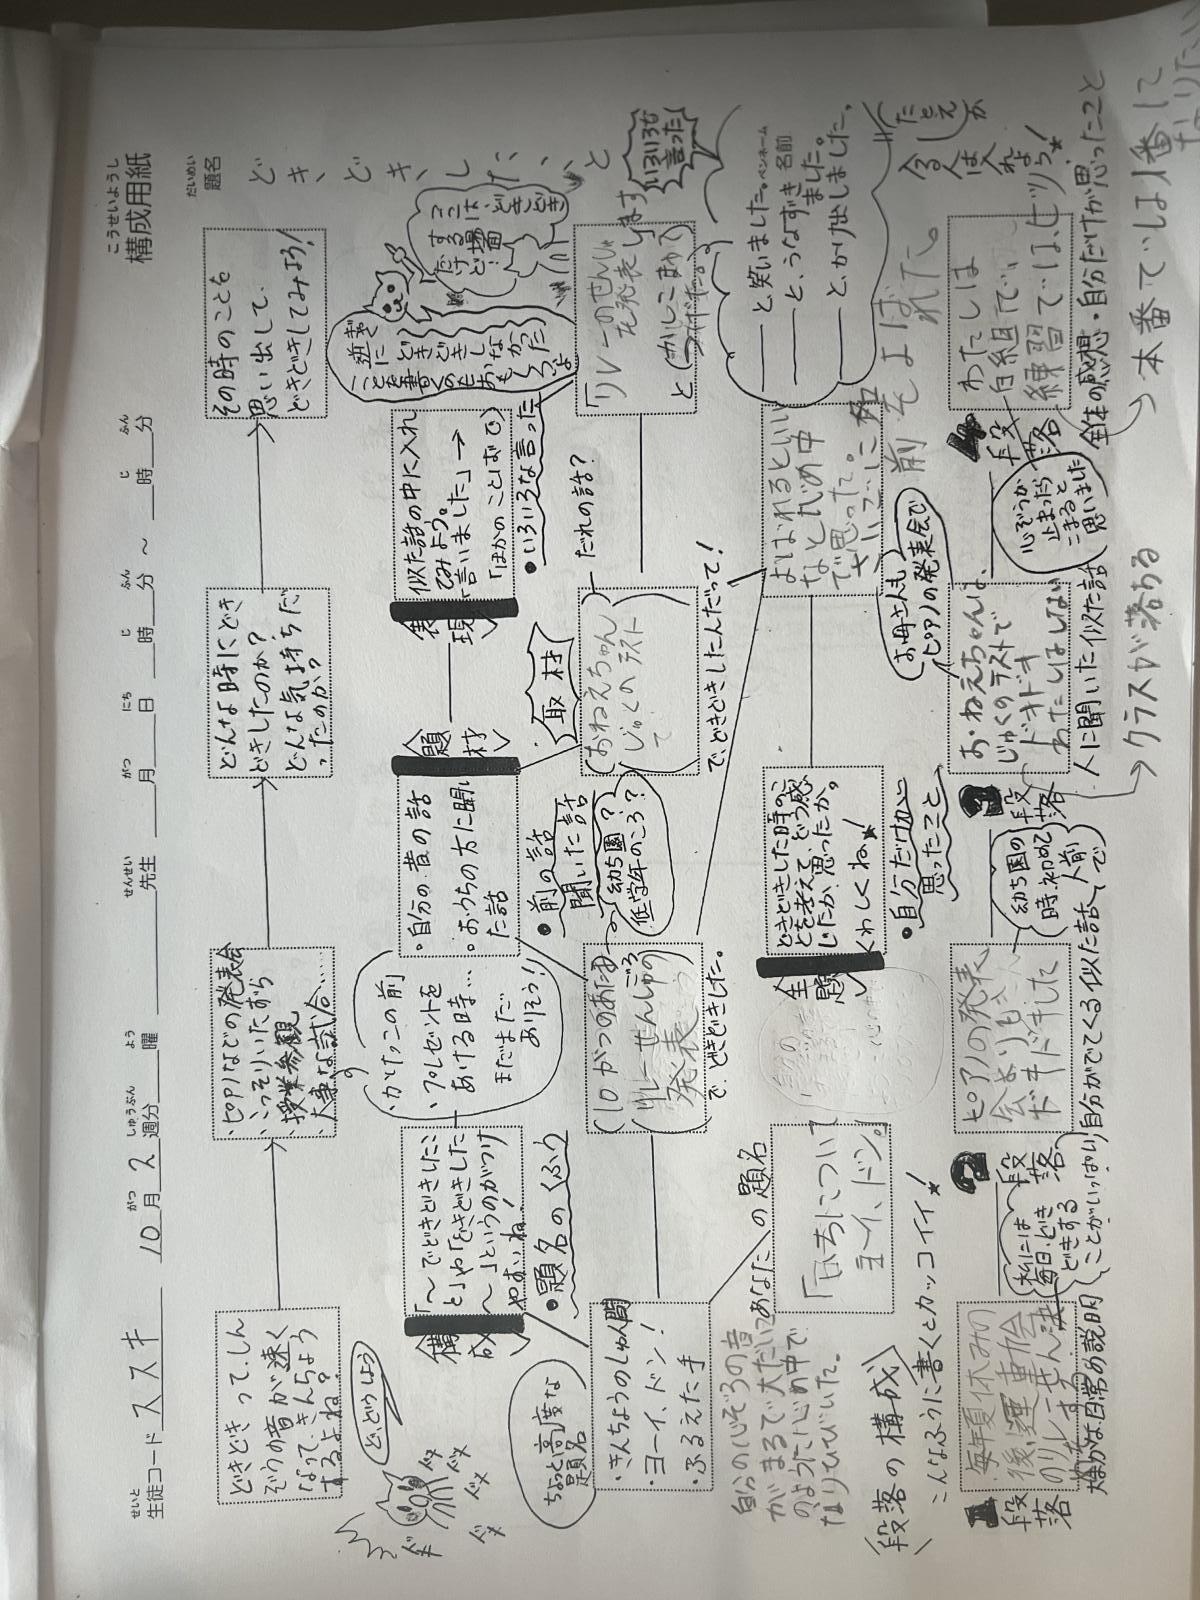 こうせいようし
構成用紙
せいと
生徒コード ススキ
がつ しゅうぶん よう
10月2週分 曜
せんせい
先生
がつ にち じ ふん じ ふん
月 日 時 分 ～ 時 分
だいめい
題名
どき、どきした、、、と
どきどきって、しん
ぞうの音が速く
なって、きんちょう
するよね？
・ピアノなどの発表会
・こっそりいたずら
・授業参観
・大事な試合……
どんな時にどき
どきしたのか？
どんな気持ちだ
ったのか？
その時のことも
思い出して、
どきどきしてみよう！
ど、どうしよう
構成
「～でどきどきしたこ
と」や「どきどきした
～」というのがつけ
やすいね！
・題名のくふう
・かけっこの前
・プレゼントを
あげる時…
まだまだ
ありそう！
題材
・自分の昔の話
・おうちの方に聞い
た話
・前の話
聞いた話
取材
表現
似た話の中に入れ
てみよう。
「言いました」→
「ほかのことばで」
・いろいろな言った
逆に
どきどきしなかった
ことを書くのもおもしろいよ
ここは、どきどき
する
だけど
場面
いろいろな
言った
ちょっと高度な
題名
・きんちょうのしゅん間
・ヨーイ、ドン！
・ふるえた手
10がつのあたま
リレーせんしゅの
発表
で、どきどきした。
幼ち園？
低学年のころ？
おねえちゃん
じゅくのテスト
で
で、どきどきしたんだって！
だれの話？
「リレーのせんしゅ
を発表します
と
――と、笑いました。
――と、うなずきました。
――と、かけ出しました。
ペンネーム
名前
あなたの題名
「白ちについて
ヨーイ、ドン。」
自分の心ぞうの音
がまるで大だいこ
のように心の中で
なりひびいた。
全題
どきどきした時のこ
とを考えて、どう感
じたか、思ったか。
くわしくね！
・自分だけが
思ったこと
よばれるといい
なと心の中
で思った。
前
をよばれた。
お母さんも
ピアノの発表会で
段落の構成
こんなふうに書くとカッコイイ！
1段落
毎年夏休みの
後、運動会
のリレーせん決
大まかな日常の説明
私には
毎日、どき
どきする
ことがいっぱい
2段落
ピアノの発表
会よりも
ドキドキした
自分がでてくる似た話
幼ち園の
時、初めて
人前で
3段落
お・ねえちゃんは、
じゅくのテストで
ドキドキ
わたしはしない
人に聞いた似た話
→クラスが落ちる
心ぞうが
止まったら
こまると
思いました
4段落
わたしは
白組で、
練習では、ヒツリ
全体の感想・自分だけが思ったこと
→本番では1番して
なりたい
たとえ
か
会話
入る人は
入れよう！